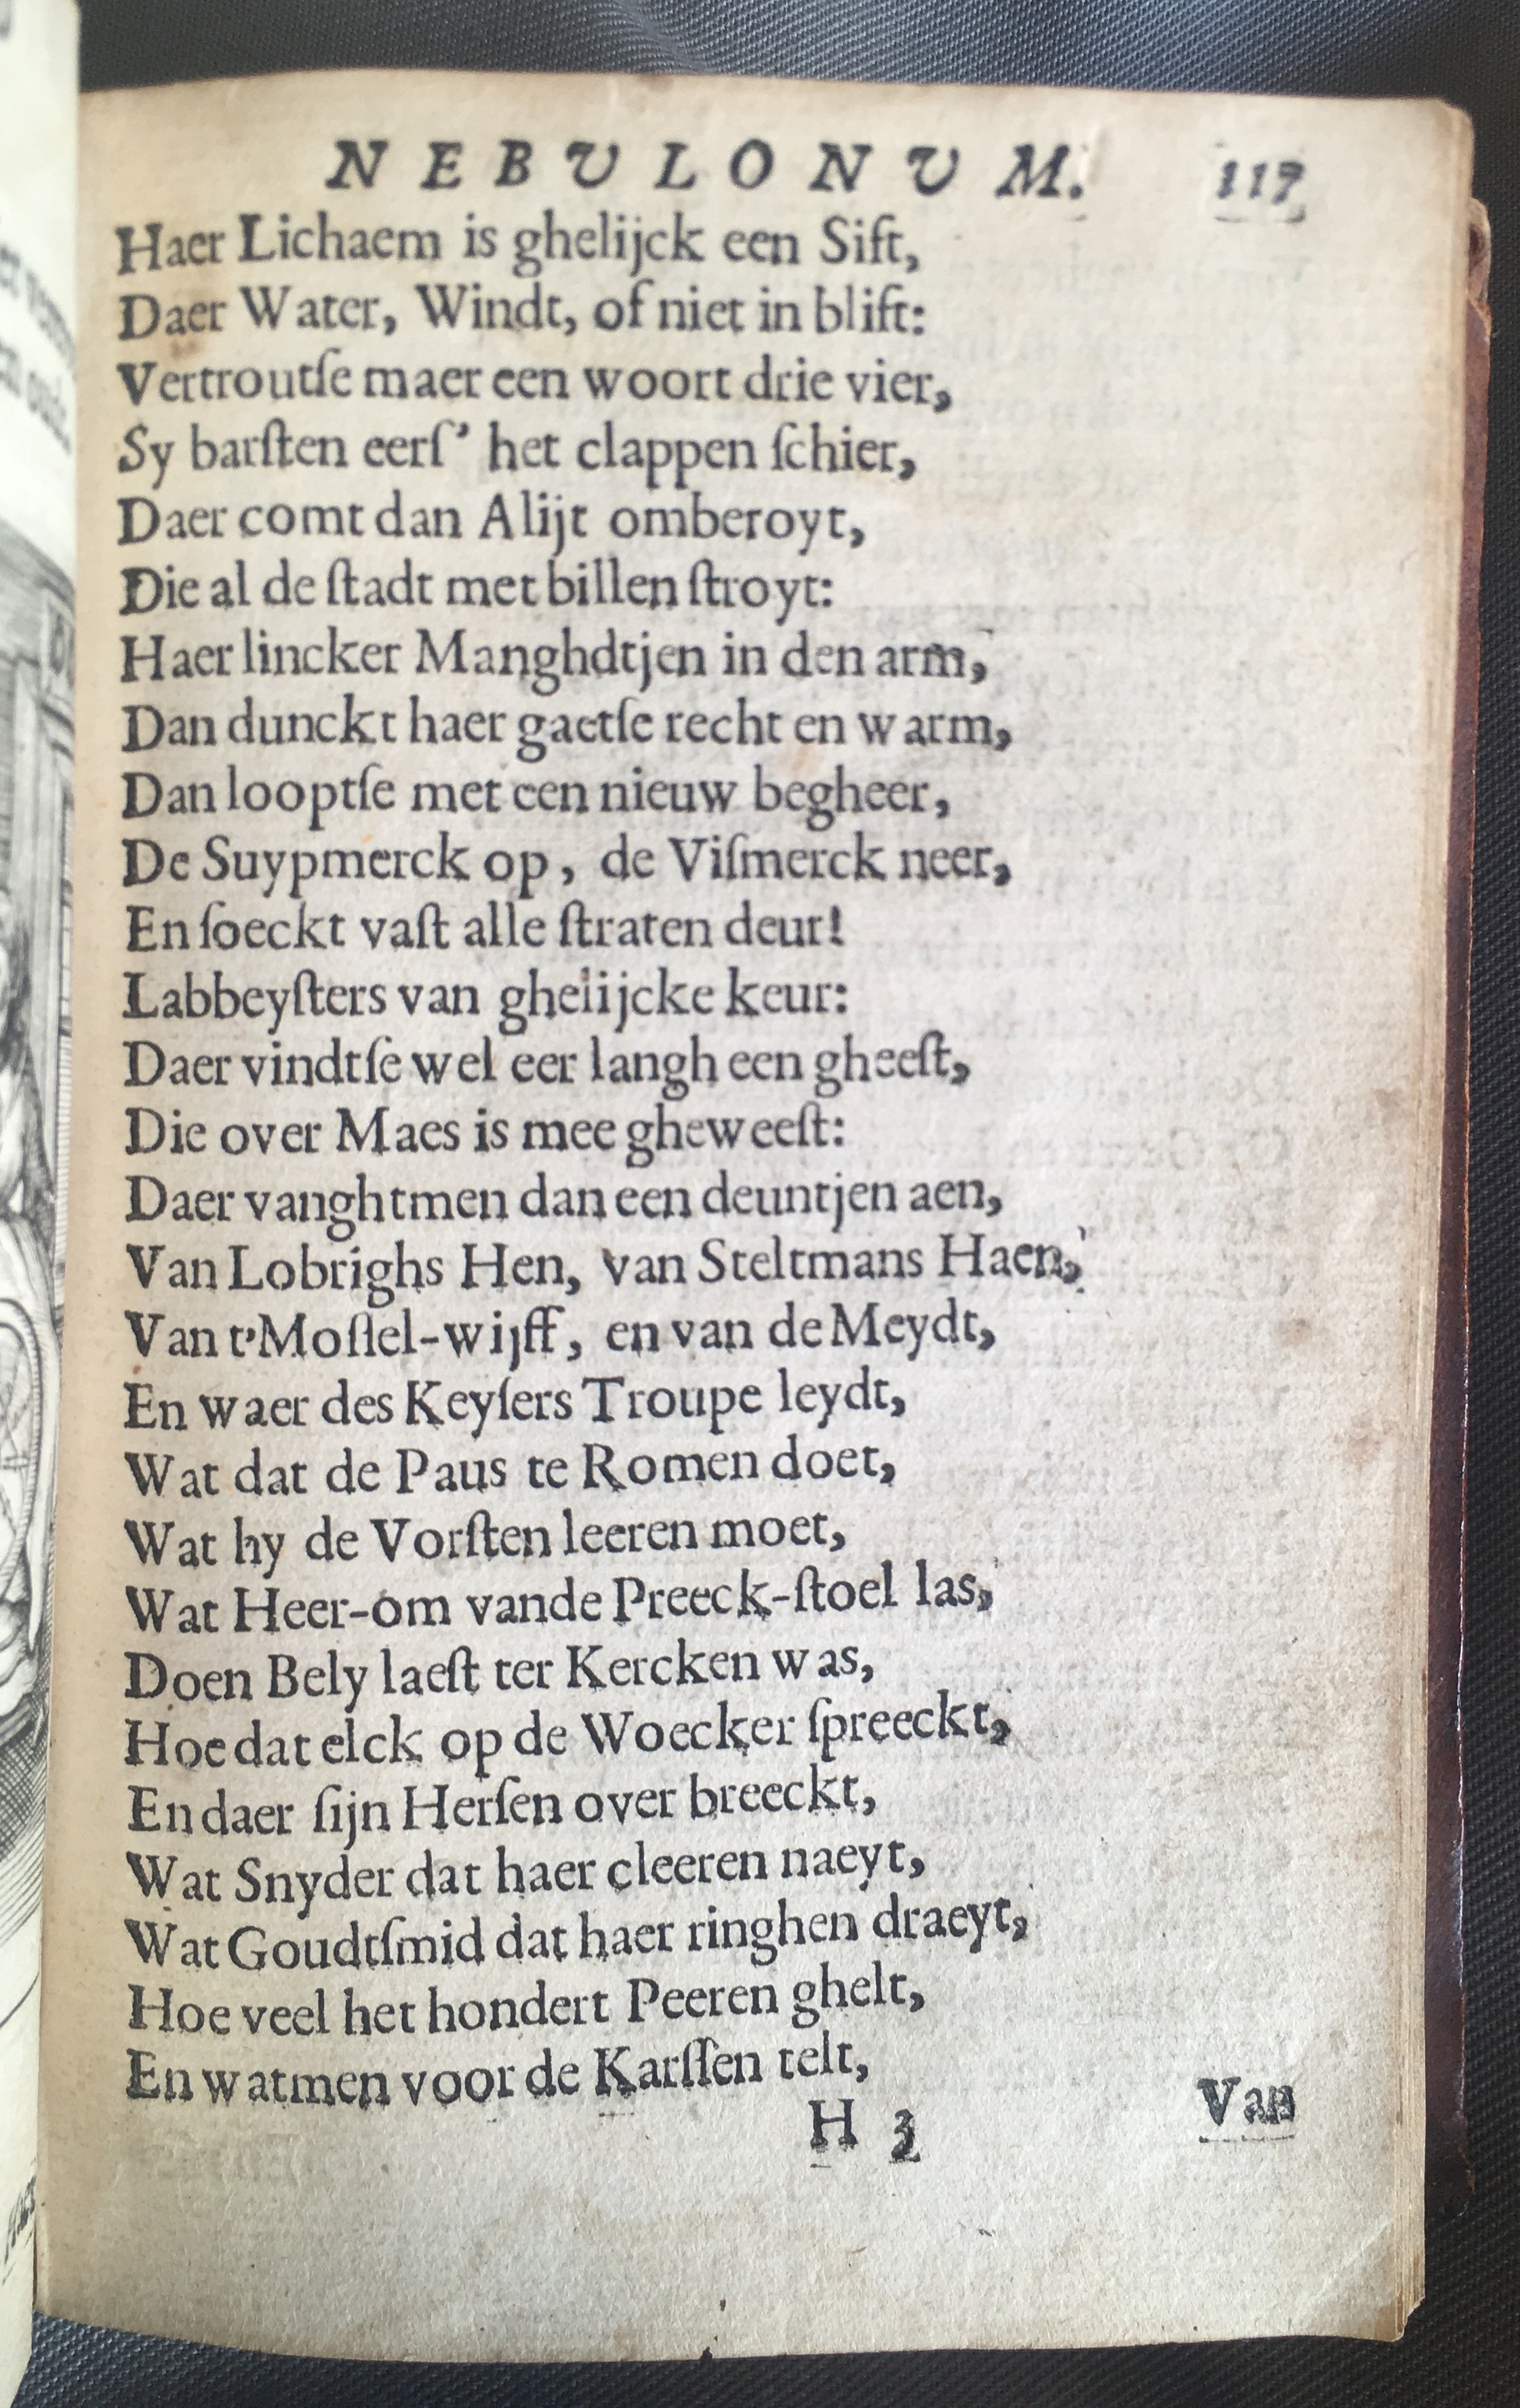 NEBVLONVM. 117
Haer Lichaem is ghelijck een Sift,
Daer Water, Windt, of niet in blift:
Vertroutſe maer een woort drie vier,
Sy barſten eerſ’ het clappen ſchier,
Daer comt dan Alijt omberoyt,
Die al de ſtadt met billen ſtroyt:
Haer lincker Manghdtjen in den arm,
Dan dunckt haer gaetſe recht en warm,
Dan looptſe met een nieuw begheer,
De Suypmerck op, de Viſmerck neer,
En ſoeckt vaſt alle ſtraten deur!
Labbeyſters van ghelijcke keur:
Daer vindtſe wel eer langh een gheeſt,
Die over Maes is mee gheweeſt:
Daer vanghtmen dan een deuntjen aen,
Van Lobrighs Hen, van Steltmans Haen,
Van t'Moſſel-wijff, en van de Meydt,
En waer des Keyſers Troupe leydt,
Wat dat de Paus te Romen doet,
Wat hy de Vorſten leeren moet,
Wat Heer-om vande Preeck-ſtoel las,
Doen Bely laeſt ter Kercken was,
Hoe dat elck op de Woecker ſpreeckt,
En daer ſijn Herſen over breeckt,
Wat Snyder dat haer cleeren naeyt,
Wat Goudtſmid dat haer ringhen draeyt,
Hoe veel het hondert Peeren ghelt,
En watmen voor de Karſſen telt,
H 3 Van